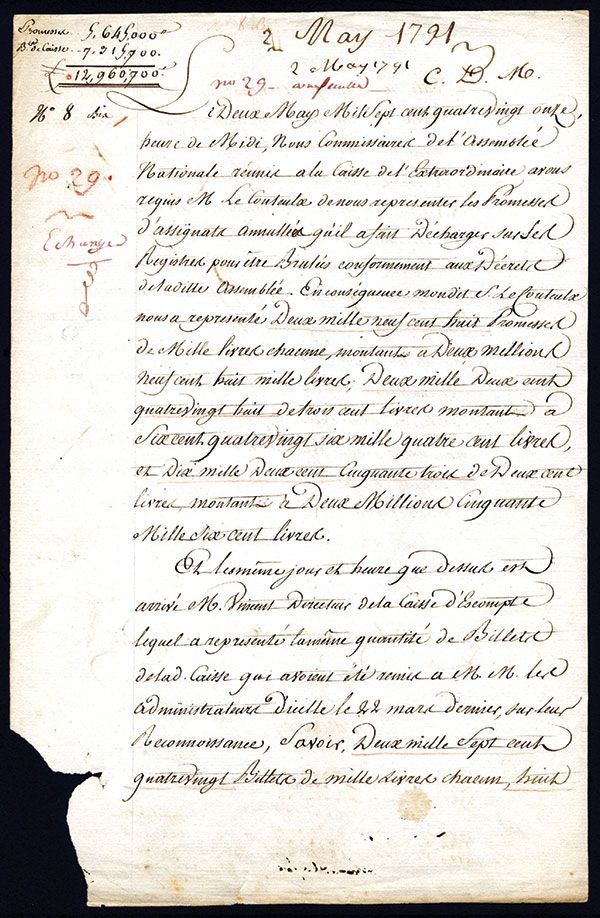 Promesses 5,645,000#
B.ts de Caisse 7,315,700.
12,960,700.
2 May 1791
2 May 1791
no 29.
C. D. M.
No 8 Bis
no 29.
Echange
Deux May Mil Sept cent quatrevingt onze,
heure de Midi, Nous Commissaires de l'Assemblée
Nationale réunis a la Caisse de l'Extraordinaire avons
requis M. Le Couteulx de nous representer les Promesses
d'assignats annullés qu'il a fait Décharger sur Ses
Registres pour être Brulés conformement aux Décrets
de ladite Assemblée. En conséquence mondit S. Le Couteulx
nous a représenté Deux mille neuf cent huit Promesses
de Mille livres chacune, montant à Deux millions
neuf cent huit mille livres, Deux mille Deux cent
quatrevingt huit de trois cent livres montant à
Six cent quatrevingt six mille quatre cent livres,
et Dix mille Deux cent Cinquante trois de Deux cent
livres, montant à Deux Millions Cinquante
Mille six cent livres.
Et les même jour et heure que dessus est
arrivé M. Vincent Directeur de la Caisse d'Escompte
lequel a représenté la même quantité de Billets
de lad. Caisse qui avoient été remis a M. M. les
administrateurs d'icelle le 22 mars dernier, sur leur
Reconnoissance, Savoir, Deux mille Sept cent
quatrevingt Billets de mille Livres chacun, huit